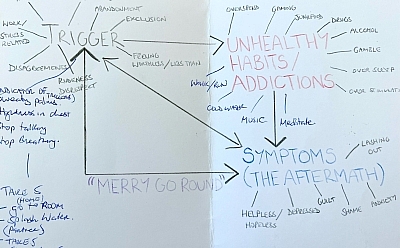 ABANDONMENT
EXCLUSION
WORK/
STRESS
RELATED
TRIGGER
FEELING
WORTHLESS/LESS THAN
DISAGREEMENTS
RUDENESS
DISRESPECT
INDICATOR OF
(TRIGGERS)
sweaty palms
tightness in chest
stop talking
stop breathing.
TAKE 5
(HOME)
- go to ROOM
- Splash Water.
(Partner)
- TAKE 5
OVERSPEND
GAMING
DRUGS
ALCOHOL
GAMBLE
OVER SLEEP
UNHEALTHY
HABITS/
ADDICTIONS
COLD WATER
MUSIC
Meditate
SYMPTOMS
(THE AFTERMATH)
LASHING
OUT
"MERRY GO ROUND"
HELPLESS/
HOPELESS
DEPRESSED
GUILT
SHAME
ANXIETY